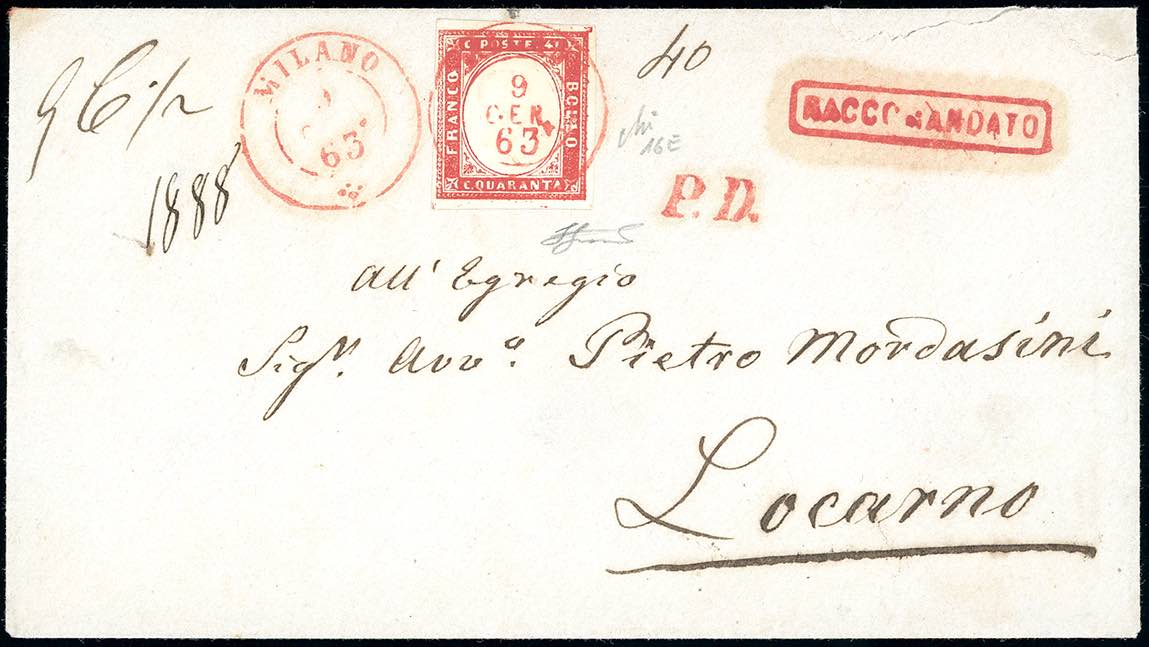 40
1888
MILANO
63
C. POSTE. 4
FRANCO
BOLLO
9
GEN.
63
C. QUARANTA
RACCOMANDATO
16E
P.D.
all' Egregio
Sigr. Avvo. Pietro Mordasini
Locarno